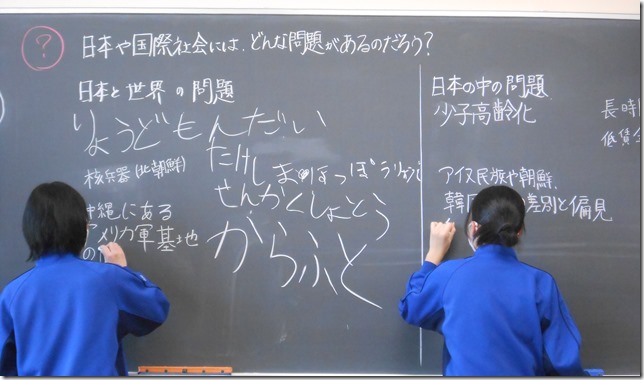 ?
日本や国際社会には、どんな問題があるのだろう?
日本と世界の問題
りょうどもんだい
核兵器(北朝鮮)
たけしま
ほっぽうりょう
せんかくしょとう
沖縄にある
アメリカ軍基地
の
からふと
日本の中の問題
少子高齢化
アイヌ民族や朝鮮、
韓 差別と偏見
長時
低賃